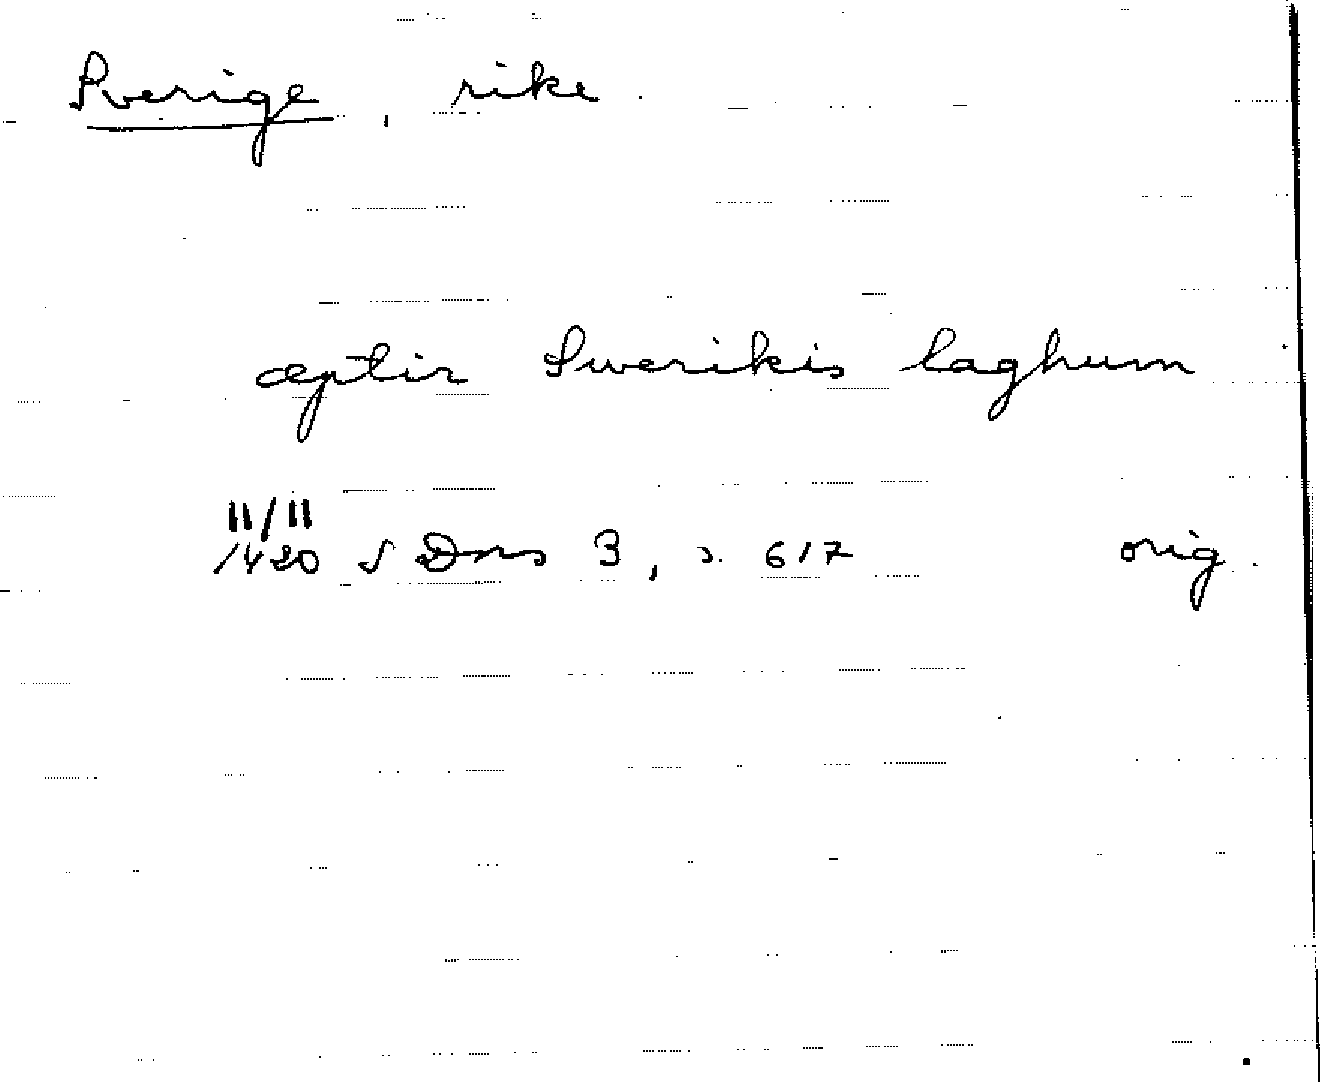 Sverige, rike
æptir Swerikis laghum
11/11
1420 SDns 3, s. 617 orig.